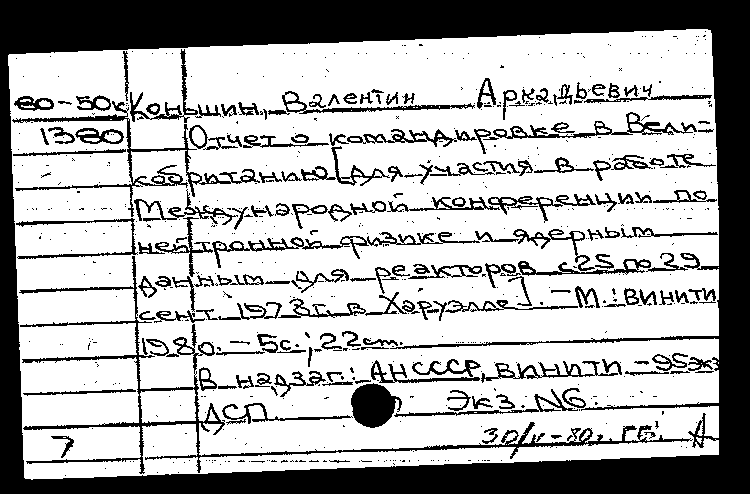 80-50к Коньшин, Валентин Аркадьевич
1380 Отчет о командировке в Вели-
кобританию [для участия в работе
Международной конференции по
нейтронной физике и ядерным
данным для реакторов с 25 по 29
сент. 1978г. в Харуэлле]. - М.: ВИНИТИ
1980. - 5с.; 22см.
В надзаг.: АН СССР, ВИНИТИ. - 95экз
ДСП Экз. N6.
7 30/V-80г. ГБ.